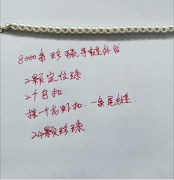 8000条珍珠手链外合
2颗定位珠
2个包扣
搭一个龙虾扣、一条尾链
24颗珍珠